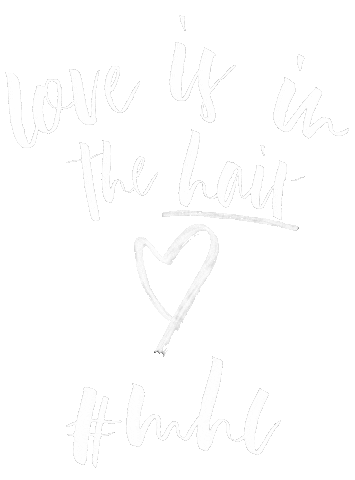 love is in
the hair
#mhl